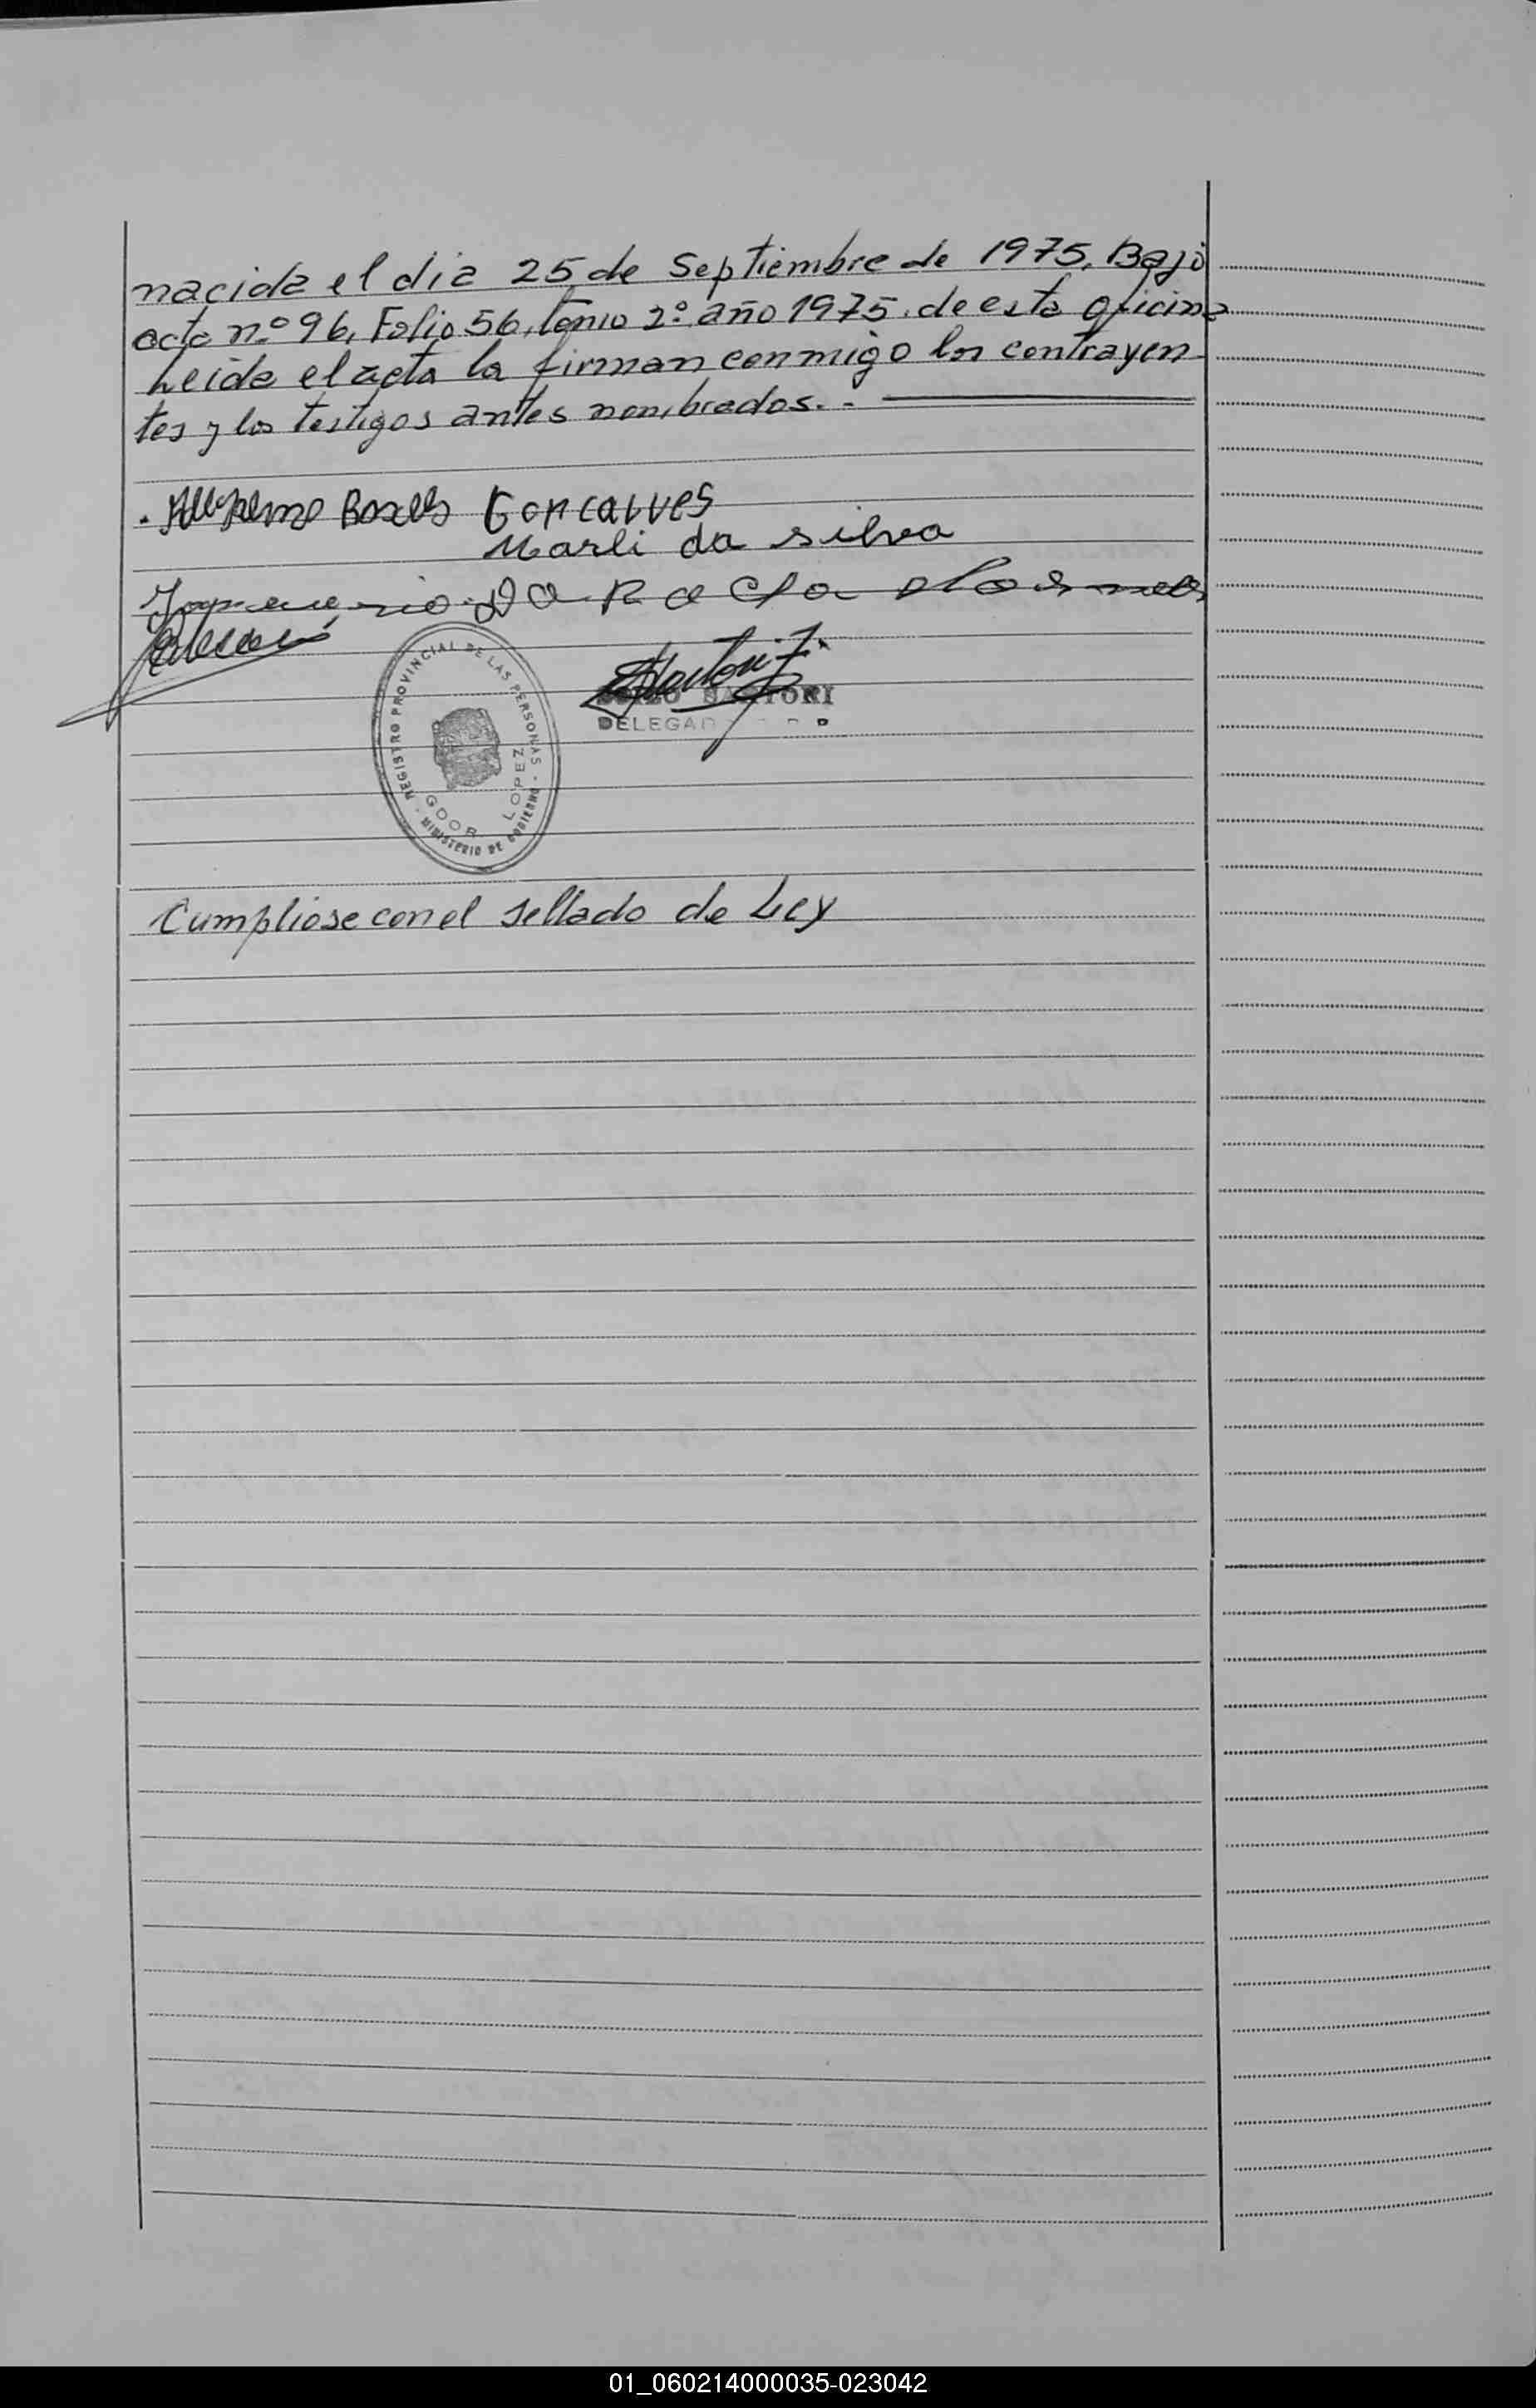 nacida el dia 25 de Septiembre de 1975. Bajo
acta n.º 96, Folio 56, tomo 2º. año 1975. de esta oficina
Leida el acta la firman conmigo los contrayen-
tes y los testigos antes nombrados. -
Borges Goncalves
Marli da silva
da
REGISTRO PROVINCIAL DE LAS PERSONAS - MINISTERIO DE GOBIERNO -
GDOR LOPEZ
SARTORI
Cumpliose con el sellado de Ley
01_060214000035-023042